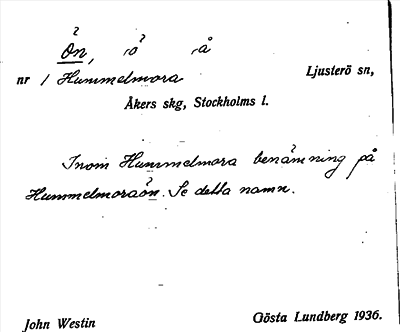 Ön, ,ö ,å
nr 1 Hummelmora Ljusterö sn,
Åkers skg, Stockholms l.
Inom Hummelmora benämning på
Hummelmoraön. Se detta namn.
John Westin Gösta Lundberg 1936.